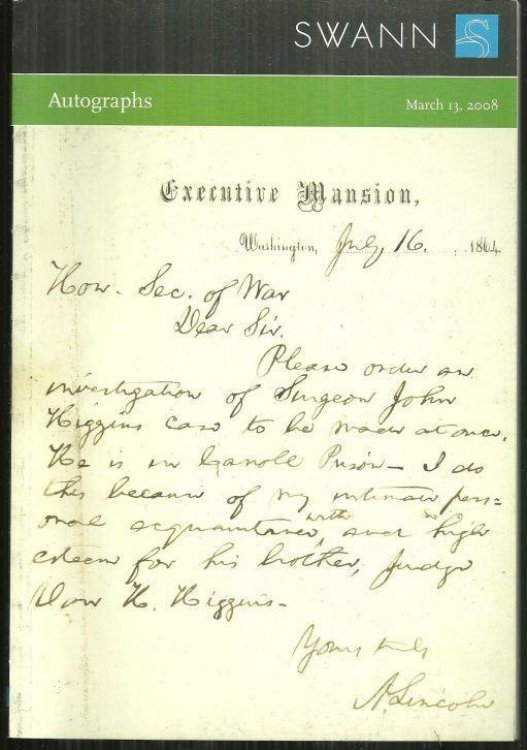 SWANN
Autographs March 13, 2008
Executive Mansion,
Washington, July 16. , 1864.
Hon. Sec. of War
Dear Sir.
Please order an
investigation of Surgeon John
Higgins case to be made at once.
He is in Carroll Prison — I do
this because of my intimate pers=
onal acquaintance with, and high
esteem for his brother, Judge
Van H. Higgins.
Yours truly
A. Lincoln